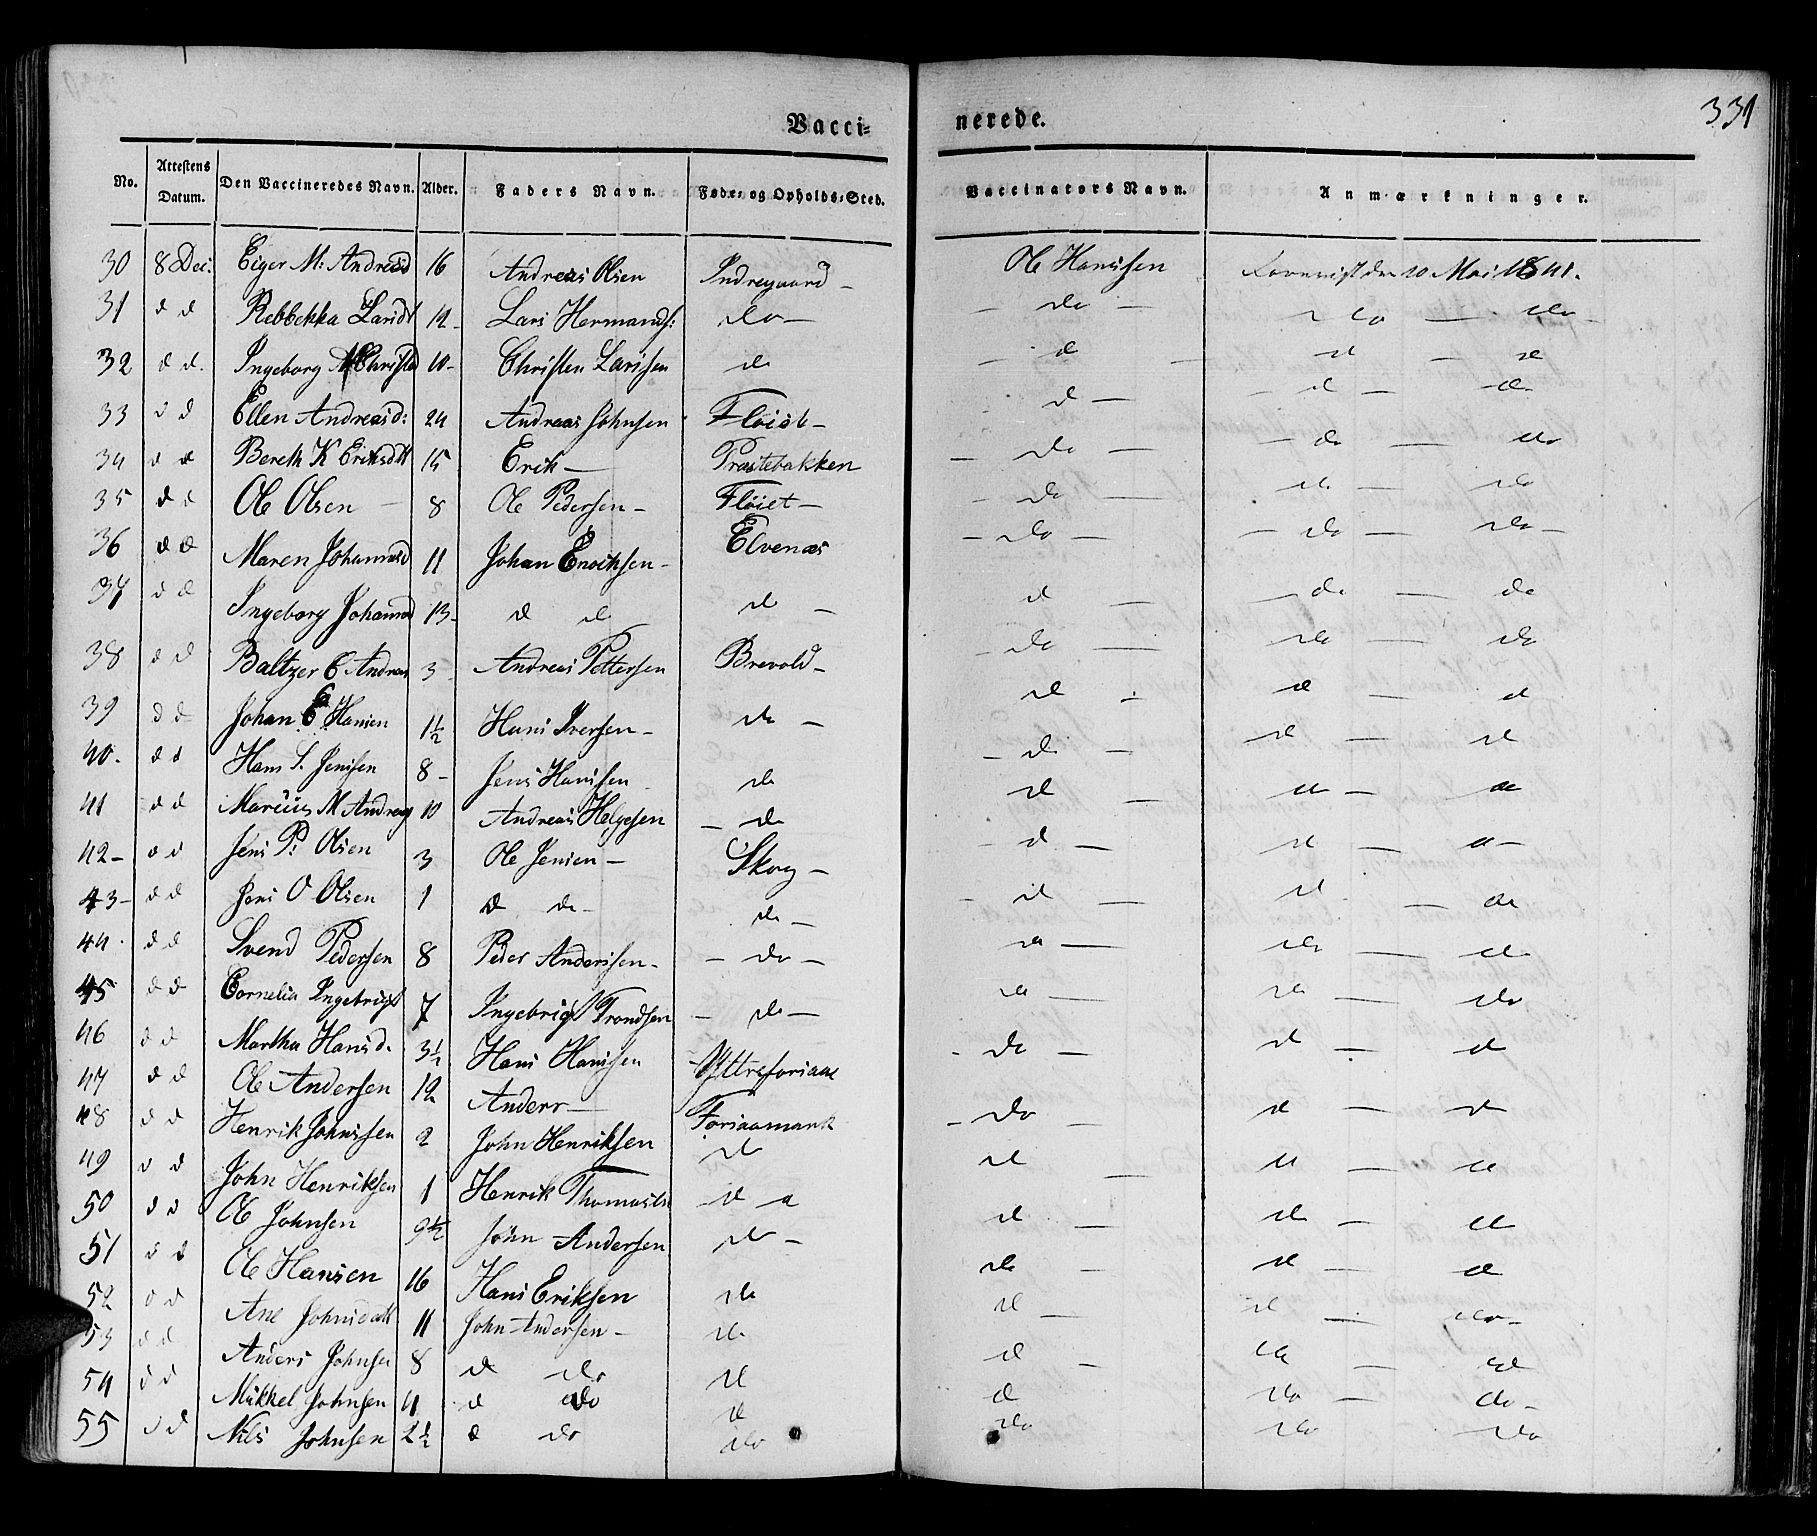 331
Vacci- nerede.
No. Attestens Datum. Den Vaccineredes Navn. Alder. Faders Navn. Føde- og Opholds-Sted. Vaccinators Navn. Anmærkninger.
30 8 Dec: Eiger M: Andreasd 16 Andreas Olsen Indregaard - Ole Hanssen 10 Mai 1841.
31 d d Rebbekka Larsdt 12 - Lars Hermands: do - - do - do - do -
32 d d. Ingeborg M Christd 10 - Christen Larssen do - d - d - d
33 d d Ellen Andreasd: 24 Andreas Johnsen Fløiet - d - - d - d
34 d d Bereth K Eriksdtt 15 Erik - Præstebakken - do - - do - do
35 d d Ole Olsen - 8 Ole Pedersen - Fløiet - - do - d - do
36 d d Maren Johannsd 11 Johan Enochsen - Elvenæs - do - - do - do -
37 d d Ingeborg Johannsd 13 - d do do - d - - do - do
38 d d Baltzer C Andreas 3 - Andreas Pettersen Brevold - - do - do - do
39 d d Johan C Hansen 1½ Hans Iversen - do - d - d - d
40. d d Hans S. Jenssen 8 - Jens Hanssen do - d - d - d
41 d d Marcus M Andreas 10 Andreas Helgesen - do d - d - d
42 - d d Jens P: Olsen 3 Ole Jensen - Skog - - d - d - d -
43 - d d Jens O Olsen 1 d do - do - - d - d - do
44 d d Svend Pedersen 8 Peder Anderssen - - do - d - do - d
45 d d Cornelia Ingebrigt 7 Ingebrigt Trondsen - do - d - do - do
46 d d Martha Hansd. 3½ Hans Hanssen Yttreforiaae - do - d - d
47 d d Ole Andersen 12 Anders - Foriaamark - do - d - d
48 d d Henrik Johnssen 2 John Henriksen do d - d - d
49 d d John Henriksen 1 Henrik Thomassen d d d - d - d
50 d d Ole Johnsen 9½ John Andersen do - do - d - d
51 d d Ole Hansen 16 Hans Eriksen do d - d - do -
52 d d Ane Johnsdatt 11 John Andersen - do d - do - d
53 d d Anders Johnsen 8 d do d d - do - do -
54 d d Mikkel Johnsen 4 d do d
55 d d Nils Johnsen 2½ d do do do do do